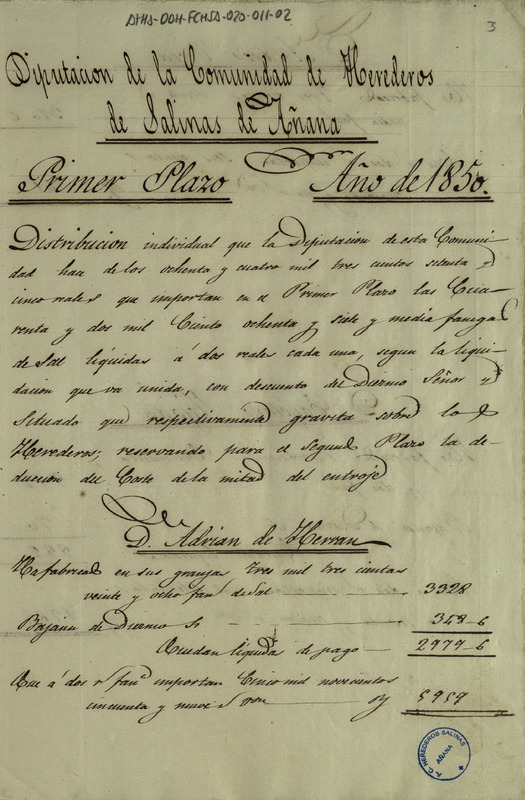 AHHS-DOH-FCHSA-020-011-02
3
Diputacion de la Comunidad de Herederos
de Salinas de Añana
Primer Plazo Año de 1850.
Distribucion individual que la Diputacion de esta Comuni-
dad hace de los ochenta y cuatro mil tres cientos setenta y
cinco reales que importan en el Primer Plazo las Cua-
renta y dos mil Ciento ochenta y siete y media fanegas
de Sal liquidas á dos reales cada una, segun la liqui-
dacion que va unida, con descuento del Diezmo Señor y
Situado que respectivamente gravita sobre los
Herederos; reservando para el Segundo Plazo la de-
duccion del Coste de la mitad del entroje
D. Adrian de Herran
Ha fabricado en sus granjas tres mil tres cientas
veinte y ocho fan.s de Sal 3328
Bajan de Diezmo 348-6
Quedan liquidas de pago 2979-6
Que á dos r.s fan.a importan Cinco mil novecientos
cincuenta y nueve r.s von 5959
A.C. HEREDEROS SALINAS
AÑANA